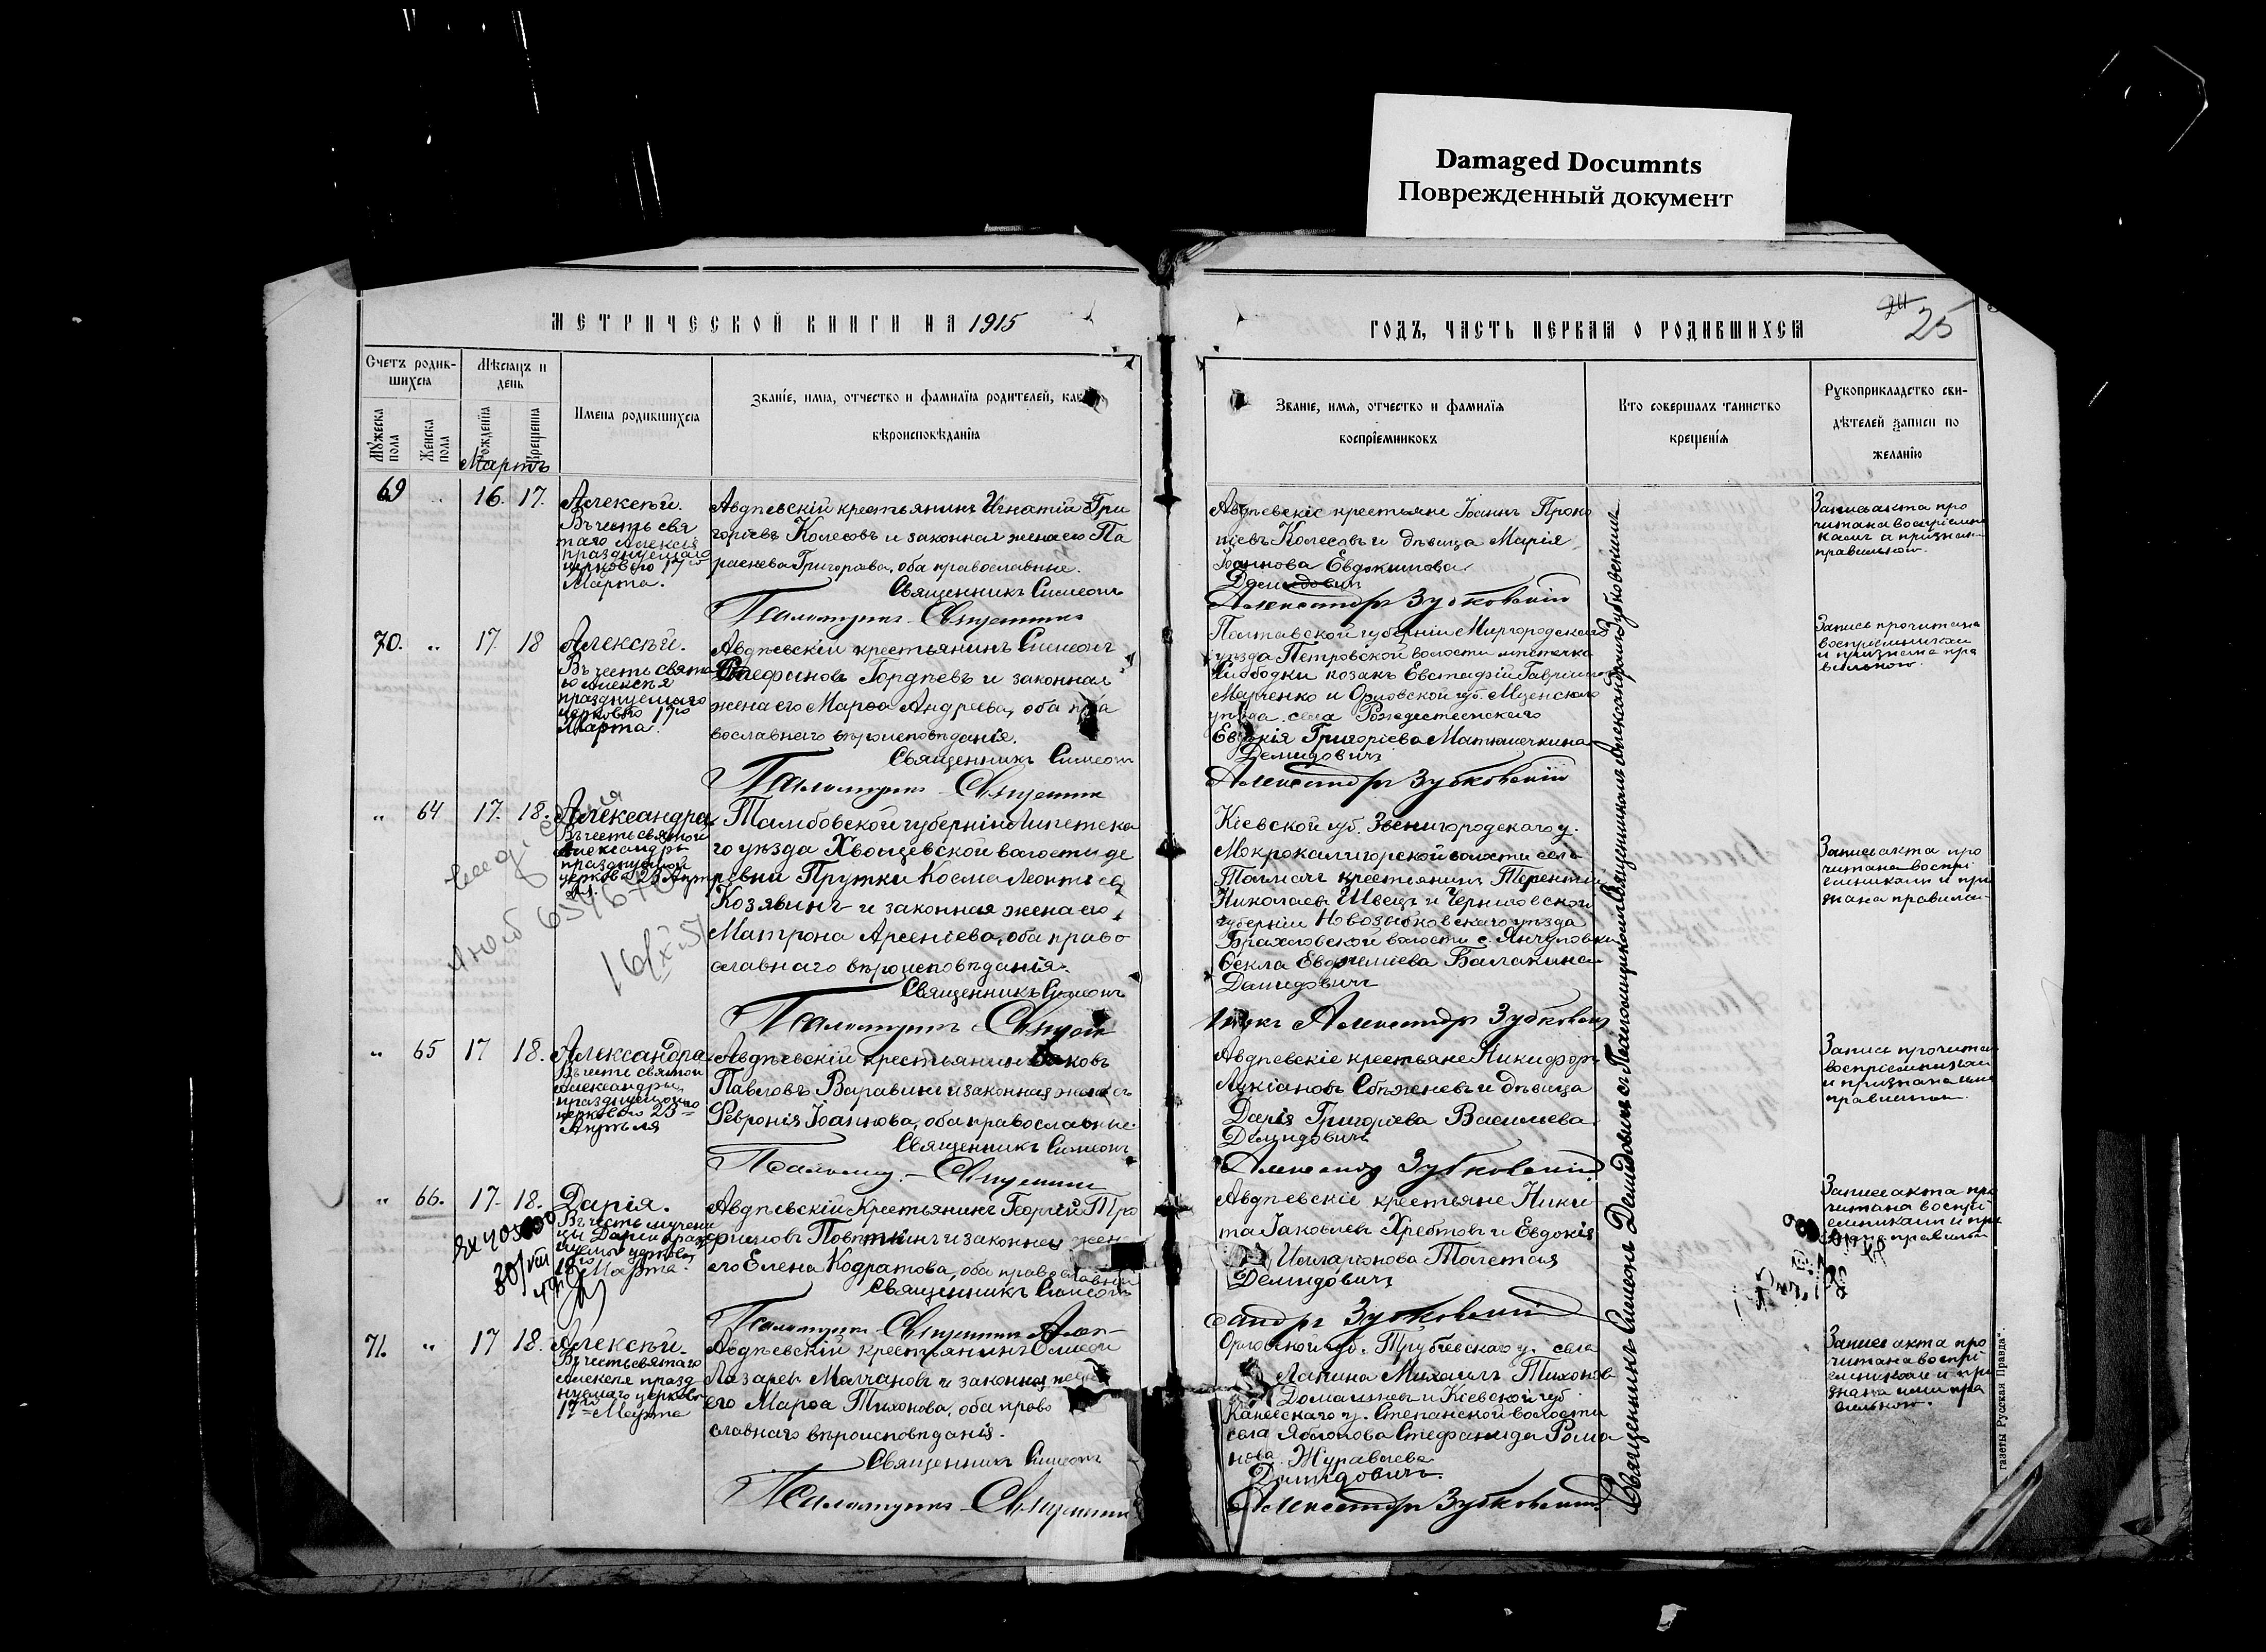 Damaged Documnts
Поврежденный документ
МЕТРИЧЕСКОЙ КНИГИ НА 1915
ГОДЪ, ЧАСТЬ ПЕРВАЯ О РОДИВШИХСЯ
24
25
Счетъ родив-
шихся
Мѣсяцъ и
день
Мужеска
пола
Женска
пола
Рожденія
Крещенія
Имена родившихся
Званіе, имя, отчество и фамилія родителей, как
вѣроисповѣданія
Званіе, имя, отчество и фамилія
воспріемниковъ
Кто совершалъ таинство
крещенія
Рукоприкладство сви-
дѣтелей записи по
желанію
Мартъ
69 " 16. 17. Алексѣй.
Въ честь свя
таго Алексія
празднуемаго
церковію 17го
Марта.
Авдѣевскій крестьянинъ Игнатій Гри
горіевъ Колесовъ и законная жена его Па
раскева Григорьева, оба православные.
Священникъ Симеонъ
Псаломщикъ
Авдѣевскіе крестьяне Іоаннъ Проко
піевъ Колесовъ и дѣвица Марія
Іоаннова Евдокимова
Демидовичъ
Александръ Зубковскій
Запись акта про
читана воспріемни
ками и признан
правильною.
70. " 17. 18 Алексѣй.
Въ честь свята
го Алексѣя
празднуемаго
церковію 17го
Марта.
Авдѣевскій крестьянинъ Симеонъ
Стефановъ Гордѣевъ и законная
жена его Марѳа Андреева, оба пра
вославнаго вѣроисповѣданія.
Священникъ Симеонъ
Псаломщикъ
Полтавской губерніи Миргородскаго
уѣзда Петровской волости мѣстечка
козакъ Евстафій Гавріиловъ
Марченко и Орловской губ. Мценскаго
уѣзда села Рождественскаго
Евдокія Григоріева Матюшечкина
Демидовичъ
Александръ Зубковскій
Запись прочитана
воспріемникам
и признана пра
вильною.
" 64 17. 18. Александра
Въ честь святой
Александры
празднуемой
церковію 23 Апр
ѣля.
Тамбовской губерніи Липецка
го уѣзда Хвощевской волости де
ревни Прутки Косма Леонтьев
Козявинъ и законная жена его
Матрона Арсеніева, оба право
славнаго вѣроисповѣданія.
Священникъ Симеонъ
Псаломщикъ
Кіевской губ. Звенигородскаго у.
Мокрокалигорской волости села
крестьянинъ Терентій
Николаевъ Швецъ и Черниговской
губерніи Новозыбковскаго уѣзда
Брахловской волости с. Янчуловки
Ѳекла Евфиміева Балакина
Демидовичъ
Александръ Зубковскій
Запись акта про
читана воспрі
емниками и при
знана правильн
" 65 17 18. Александра
Въ честь святой
Александры,
празднуемой
церковію 23го
Апрѣля
Авдѣевскій крестьянинъ Іаковъ
Павловъ Варавинъ и законная жена ег
Февронія Іоаннова, оба православные.
Священникъ Симеонъ
Авдѣевскіе крестьяне Никифоръ
Лукіановъ и дѣвица
Дарія Григоріева Васильева
Демидовичъ
Александръ Зубковскій
Запись прочитана
воспріемникам
и признана ими
правильною.
" 66. 17. 18. Дарія.
Въ честь мучени
цы Даріи праздн
уемой церковію
19го Марта.
Авдѣевскій крестьянинъ Георгій Тро
фимовъ и законная жена
его Елена Кодратова, оба православнаго
Священникъ Симеонъ
Псаломщикъ
Авдѣевскіе крестьяне Ники
та Іаковлевъ Хребтовъ и Евдокія
Илларіонова Толстая
Демидовичъ
сандръ Зубковскій
Запись акта про
читана воспрі
емниками и при
знана правильн
71. " 17 18. Алексѣй.
Въ честь святаго
Алексія празд
нуемаго церковію
17го Марта
Авдѣевскій крестьянинъ Симеон
Лазаревъ Молчановъ и законная жена
его Марѳа Тихонова, оба право
славнаго вѣроисповѣданія.
Священникъ Симеонъ
Псаломщикъ
Орловской губ. Трубчевскаго у. села
Лапина Михаилъ Тихонов
Домашневъ и Кіевской губ.
Каневскаго у. Степанской волости
села Яблонова Стефанида Рома
нова Журавлева
Демидовичъ.
Александръ Зубковскій
Запись акта про
читана воспрі
емникам и при
знана ими пра
вильною.
Священникъ Симеонъ Демидовичъ съ Псаломщикомъ Священникомъ Александромъ Зубковскимъ
газеты „Русская Правда“.